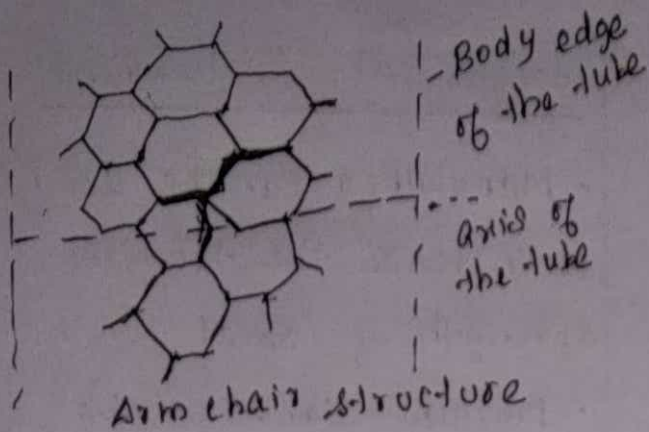 Body edge
of the tube
axis of
the tube
Arm chair structure